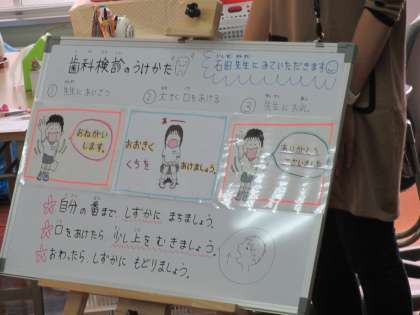 歯科検診のうけかた
石田先生にみていただきます
① 先生にあいさつ
② 大きく口をあける
③ 先生にお礼
おねがい
します。
あー
おおきく
くちを
あけましょう。
ありがとう
ございました
☆自分の番まで、しずかに まちましょう。
☆口をあけたら 少し上を むきましょう。
☆おわったら、しずかに もどりましょう。